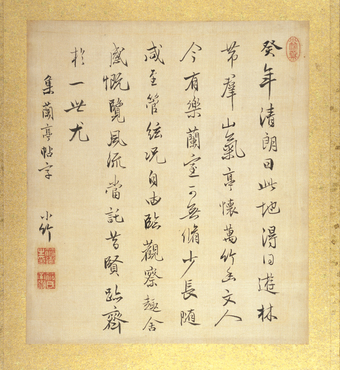 癸年清朗日此地得同遊林
帶羣山氣亭懷萬竹幽文人
今有樂蘭室可無脩少長隨
咸至管絃况自由臨觀察趣舍
感慨覽風流當託昔賢跡齊
於一世尤
集蘭亭帖字 小竹